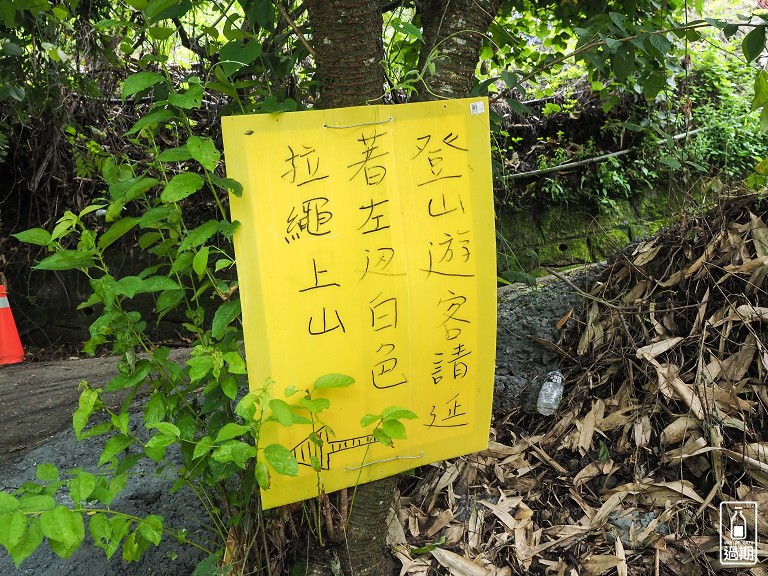 登山遊客請延
著左边白色
拉繩上山
過期